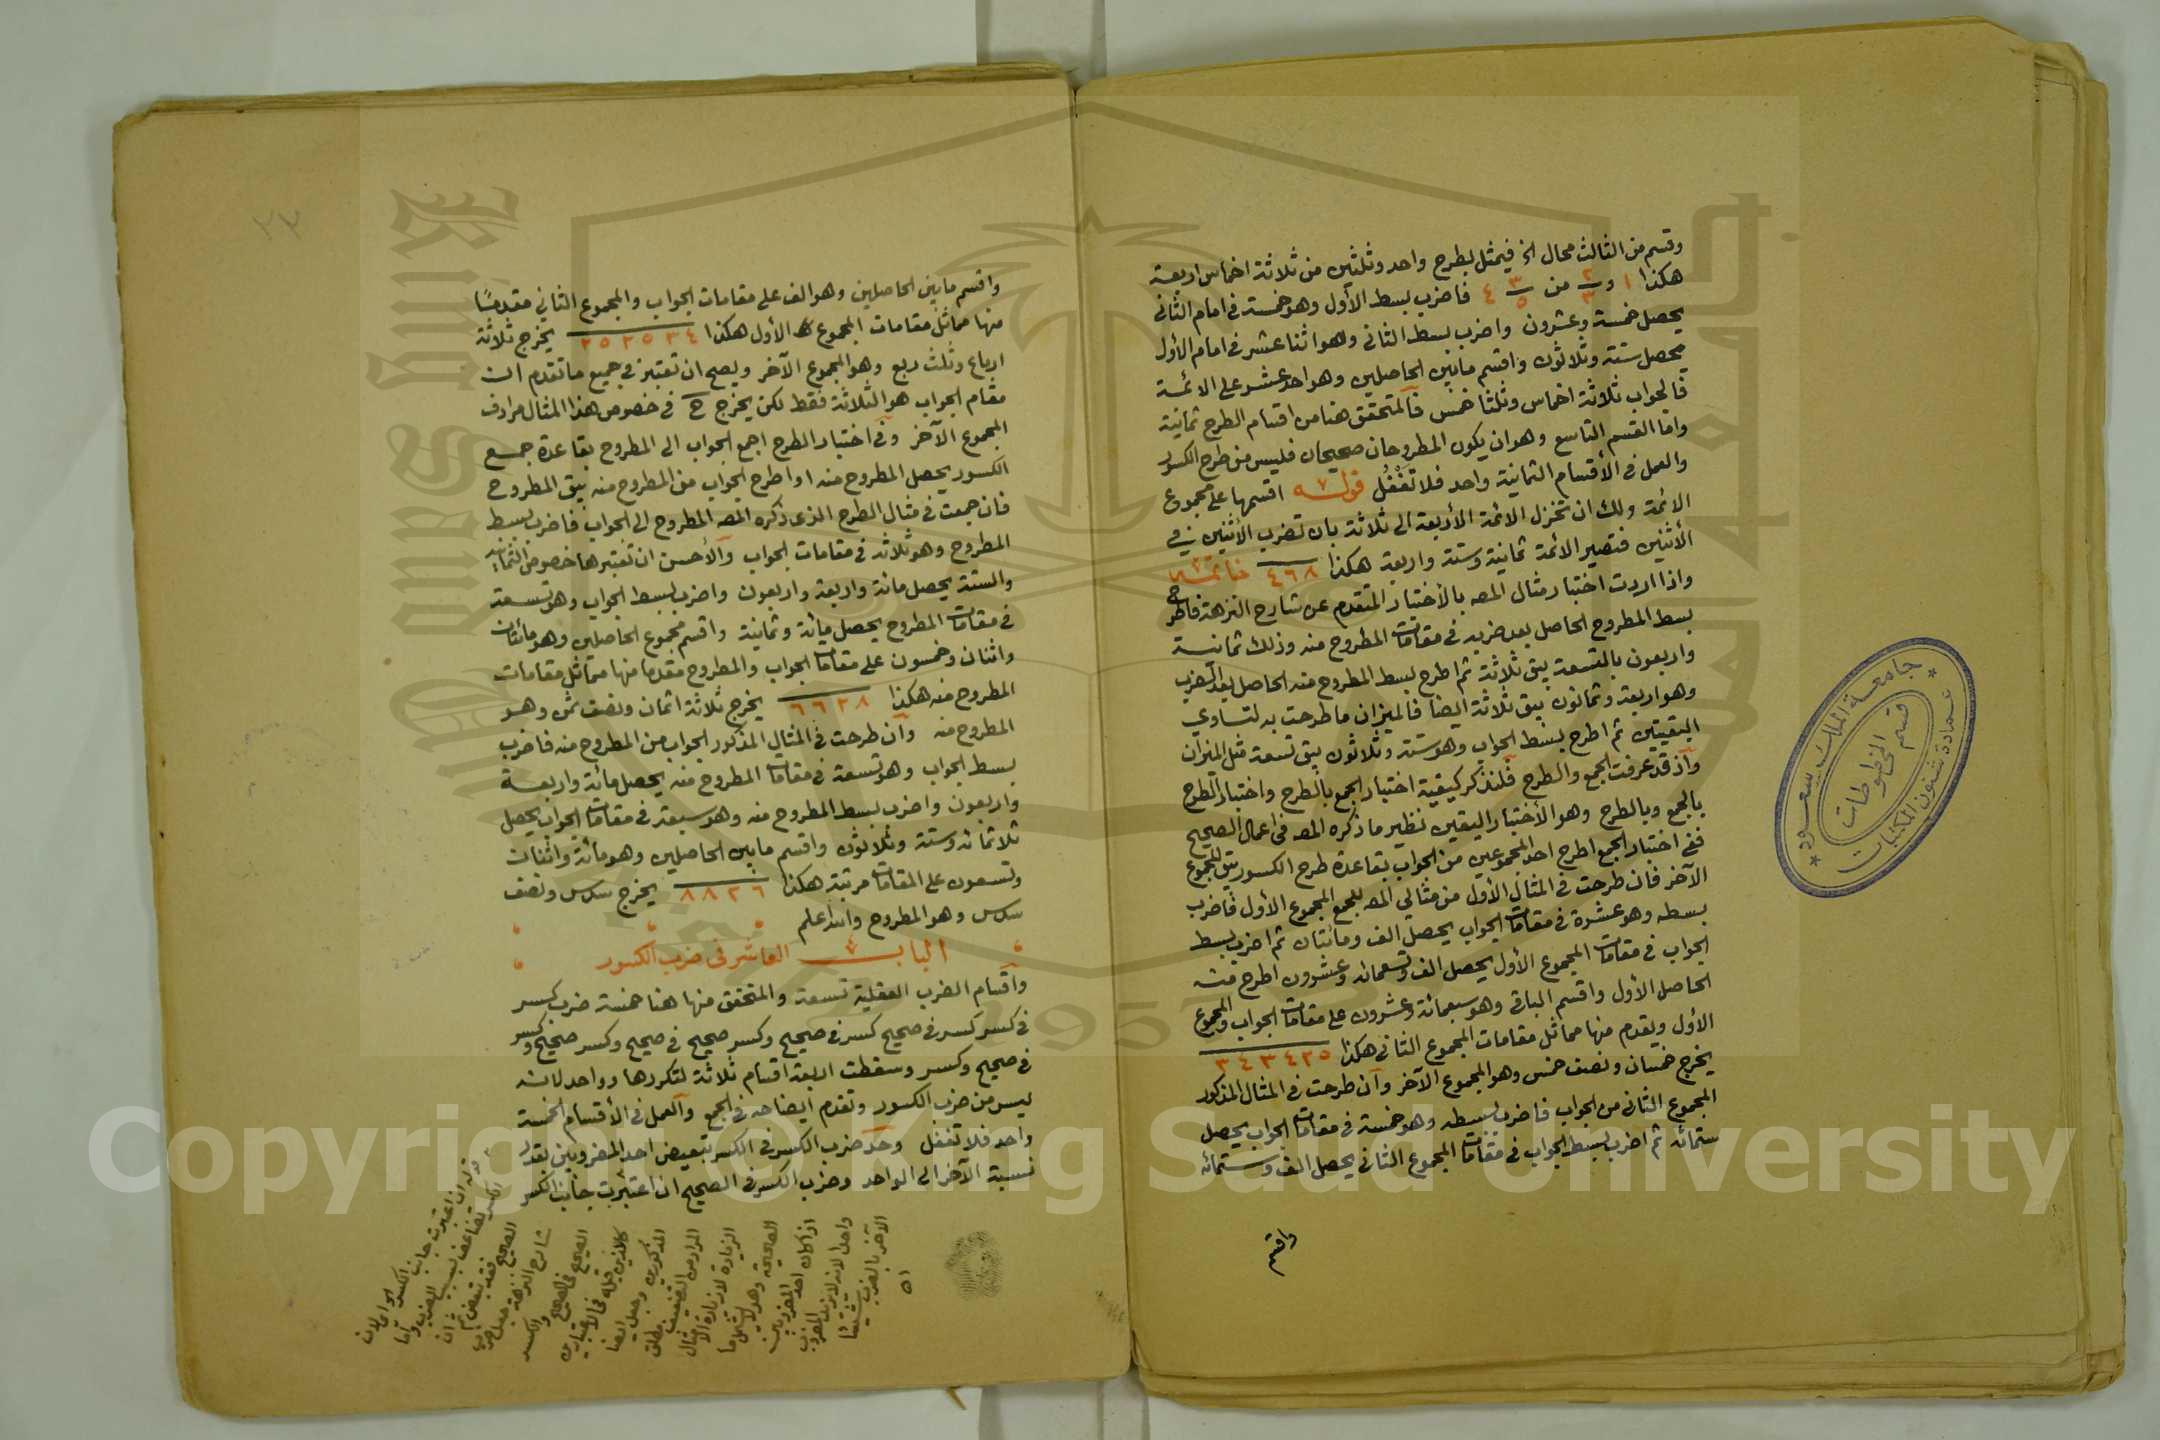 وقسم من الثالث محال الخ فيمثل بطرح واحد وثلثين من ثلاثة اخماس اربعة
هكذا ١ و ٢/٣ من ٣/٥ ٤ فاضرب بسط الأول وهو خمسة في امام الثاني
يحصل خمسة وعشرون واضرب بسط الثاني وهو اثنا عشر في امام الأول
يحصل ستة وثلاثون واقسم مابين الحاصلين وهو احد عشر على الائمة
فالجواب ثلاثة اخماس وثلثا خمس فالمتحقق هنا من اقسام الطرح ثمانية
واما القسم التاسع وهو ان يكون المطروحان صحيحان فليس من طرح الكسور
والعمل في الأقسام الثمانية واحد فلا تغفل قوله اقسمها على مجموع
الائمة ولك ان تختزل الائمة الأربعة الى ثلاثة بان تضرب الأثنين في
الأثنين فتصير الائمة ثمانية وستة واربعة هكذا ٤٦٨ خاتمة
واذا اردت اختبار مثال المصه بالأختبار المتقدم عن شارح النزهة فاطرح
بسط المطروح الحاصل بعد ضربه في مقامات المطروح منه وذلك ثمانية
واربعون بالتسعة يبق ثلاثة ثم اطرح بسط المطروح منه الحاصل بعد الضرب
وهو اربعة وثمانون يبق ثلاثة ايضا فالميزان ما طرحت به لتساوي
البقيتين ثم اطرح بسط الجواب وهو ستة وثلاثون يبق تسعة مثل الميزان
وآذ قد عرفت الجمع والطرح فلنذكر كيفية اختبار الجمع بالطرح واختبار الطرح
بالجمع وبالطرح وهو الأختبار اليقين نظير ما ذكره المصه في اعمال الصحيح
ففي اختبار الجمع اطرح احد المجموعين من الجواب بقاعدة طرح الكسور يبق المجموع
الآخر فان طرحت في المثال الأول من مثالي المصه للجمع المجموع الأول فاضرب
بسطه وهو عشرة في مقامات الجواب يحصل الف ومائتان ثم اضرب بسط
الجواب في مقامات المجموع الأول يحصل الف وتسعمائه وعشرون اطرح منه
الحاصل الأول واقسم الباقي وهو سبعمائة وعشرون على مقامات الجواب والمجموع
الأول ويقدم منها مماثل مقامات المجموع الثاني هكذا ٣٤٣٤٢٥
يخرج خمسان ونصف خمس وهو المجموع الآخر وآن طرحت في المثال المذكور
المجموع الثاني من الجواب فاضرب بسطه وهو خمسة في مقامات الجواب يحصل
ستمائه ثم اضرب بسط الجواب في مقامات المجموع الثاني يحصل الف وستمائه
واقسم
جامعة الملك سعود
قسم المخطوطات
عمادة شئون المكتبات
٢٣
واقسم مابين الحاصلين وهو الف على مقامات الجواب والمجموع الثاني مقدما
منها مماثل مقامات المجموع الأول هكذا ٢٥٢٥٣٤ يخرج ثلاثة
ارباع وثلث ربع وهو المجموع الآخر ويصح ان تعتبر في جميع ما تقدم ان
مقام الجواب هو الثلاثة فقط لكن يخرج ح في خصوص هذا المثال مرادف
المجموع الآخر وفي اختبار الطرح اجمع الجواب الى المطروح بقاعدة جمع
الكسور يحصل المطروح منه او اطرح الجواب من المطروح منه يبق المطروح
فان جمعت في مثال الطرح الذي ذكره المصه المطروح الى الجواب فاضرب بسط
المطروح وهو ثلاثه في مقامات الجواب والأحسن ان تعتبرها خصوص الثمانية
والستة يحصل مائة واربعة واربعون واضرب بسط الجواب وهو تسعة
في مقامات المطروح يحصل مائة وثمانية واقسم مجموع الحاصلين وهو مائتان
واثنان وخمسون على مقامات الجواب والمطروح مقدما منها مماثل مقامات
المطروح منه هكذا ٦٦٢٨ يخرج ثلاثة اثمان ونصف ثمن وهو
المطروح منه وآن طرحت في المثال المذكور الجواب من المطروح منه فاضرب
بسط الجواب وهو تسعة في مقامات المطروح منه يحصل مائة واربعة
واربعون واضرب بسط المطروح منه وهو سبعة في مقامات الجواب يحصل
ثلاثمائه وستة وثلاثون واقسم مابين الحاصلين وهو مائة واثنان
وتسعون على المقامات مرتبة هكذا ٨٨٢٦ يخرج سدس ونصف
سدس وهو المطروح والله اعلم
الباب العاشر في ضرب الكسور
واقسام الضرب العقلية تسعة والمتحقق منها هنا خمسة ضرب كسر
في كسر كسر في صحيح كسر في صحيح وكسر صحيح في صحيح وكسر صحيح وكسر
في صحيح وكسر وسقطت اربعة اقسام ثلاثة لتكررها وواحد لانه
ليس من ضرب الكسور وتقدم ايضاحه في الجمع والعمل في الأقسام الخمسة
واحد فلا تغفل وحد ضرب الكسر في الكسر تبعيض احد المضروبين بقدر
نسبة الآخر الى الواحد وضرب الكسر في الصحيح ان اعتبرت جانب الكسر
قوله ان اعتبرت جانب الكسر
الصحيح
شارح النزهة
الصحيح في الصحيح
المذكورين
الآخر بالضرب
اه
Copyright © King Saud University
King Saud University
1957